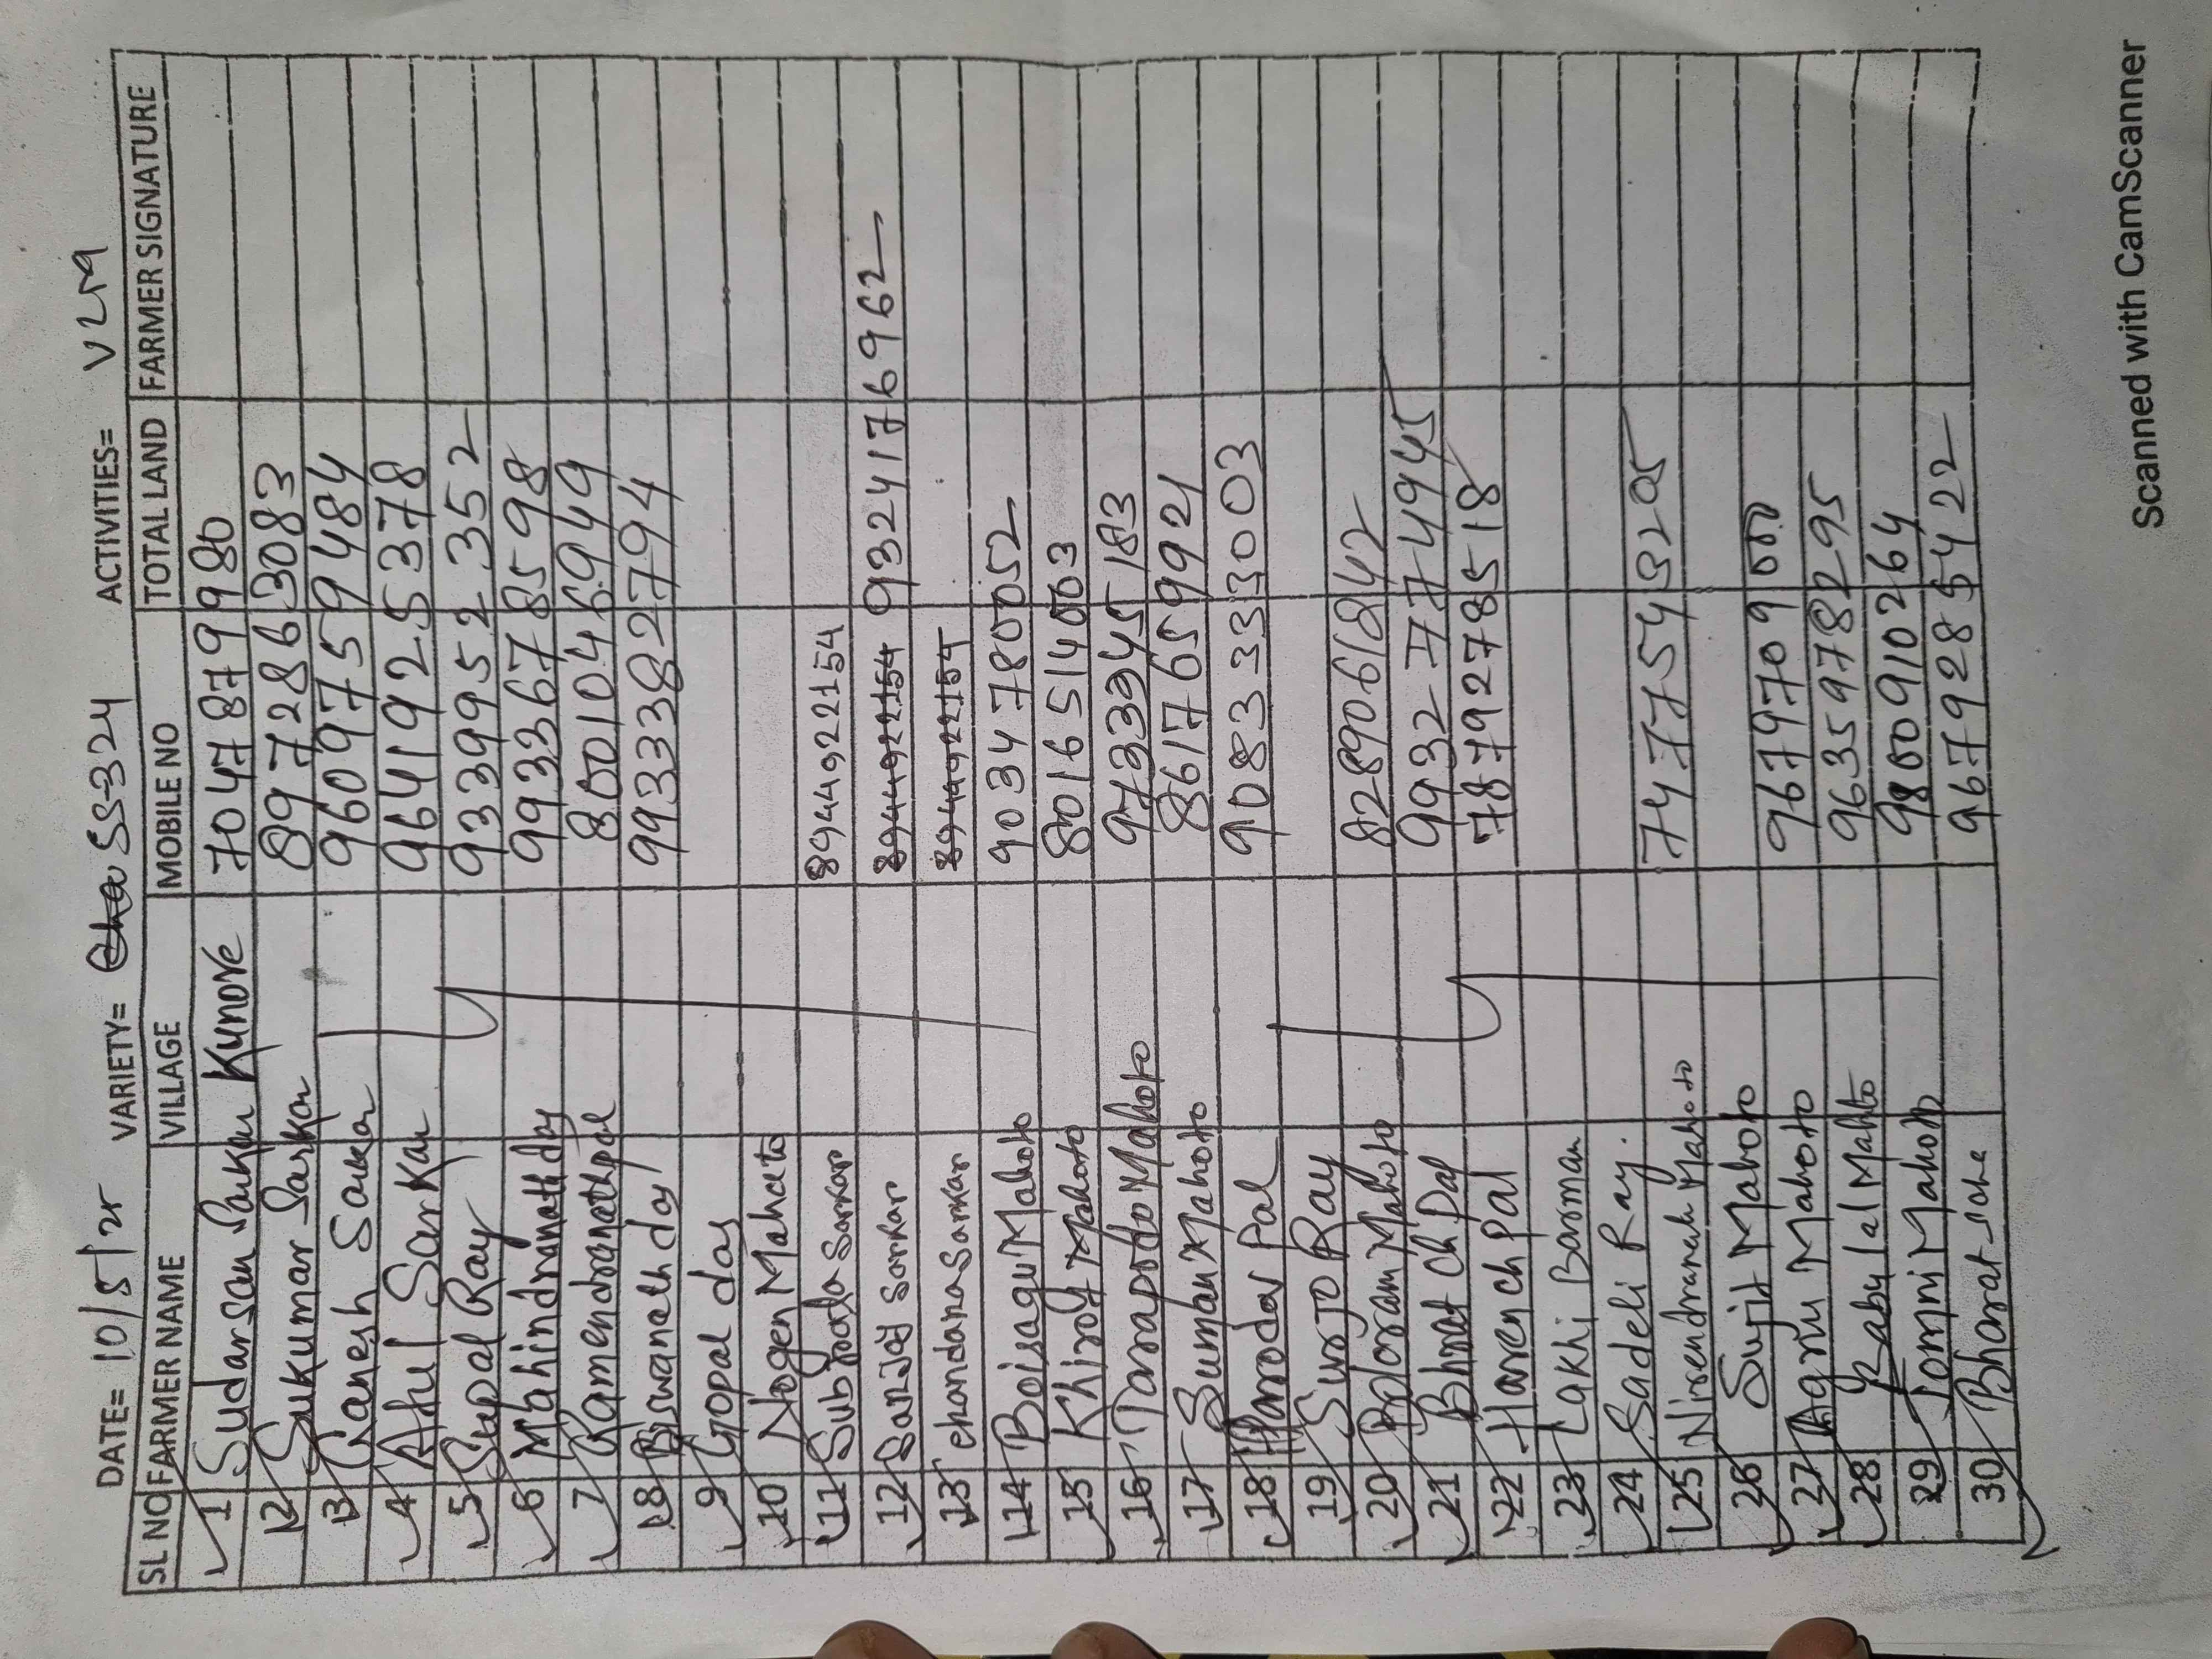 DATE= 10/5/25 VARIETY= SS-324 ACTIVITIES= V2M
SL NO FARMER NAME VILLAGE MOBILE NO TOTAL LAND FARMER SIGNATURE
1 Sudarsan Sarkar Kunore 7047879980
2 Sukumar Sarkar 8972863083
3 Ganesh Sarkar 9609759484
4 Atul Sarkar 9641925378
5 Supal Ray 9339952352
6 Mahindranath das 9933678598
7 Ramendranath pal 8001046949
8 Biswanath das 9933382794
9 Gopal das
10 Nogen Mahato
11 Subrata Sarkar 8944922154
12 Sanjoy Sarkar 8944922154 9324176962
13 Chandana Sarkar 8944922154
14 Boisagu Mahoto 9034780052
15 Khirod Mahoto 8016514003
16 Tarapodo Mahoto 9733945183
17 Suman Mahoto 8617659921
18 Pal 9083333003
19 Surjo Ray
20 Boloram Mahoto 8289061842
21 Bharat Ch Pal 9932774945
22 Haren ch Pal 7879278518
23 Lakhi Barman
24 Sadeli Ray. 7477543205
25 Nirendranath Mahoto
26 Sujit Mahoto 9679709000
27 Agru Mahoto 9635978295
28 Babulal Mahto 9800910264
29 Jomni Mahoto 9679285422
30 Bharat
Scanned with CamScanner